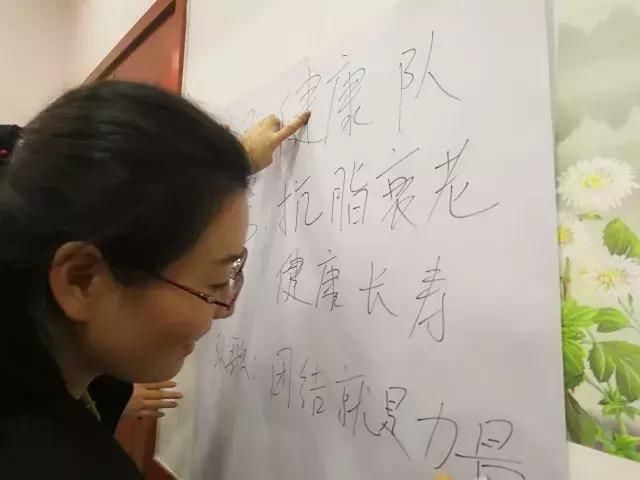 健康队
抗脂衰老
健康长寿
队歌：团结就是力量